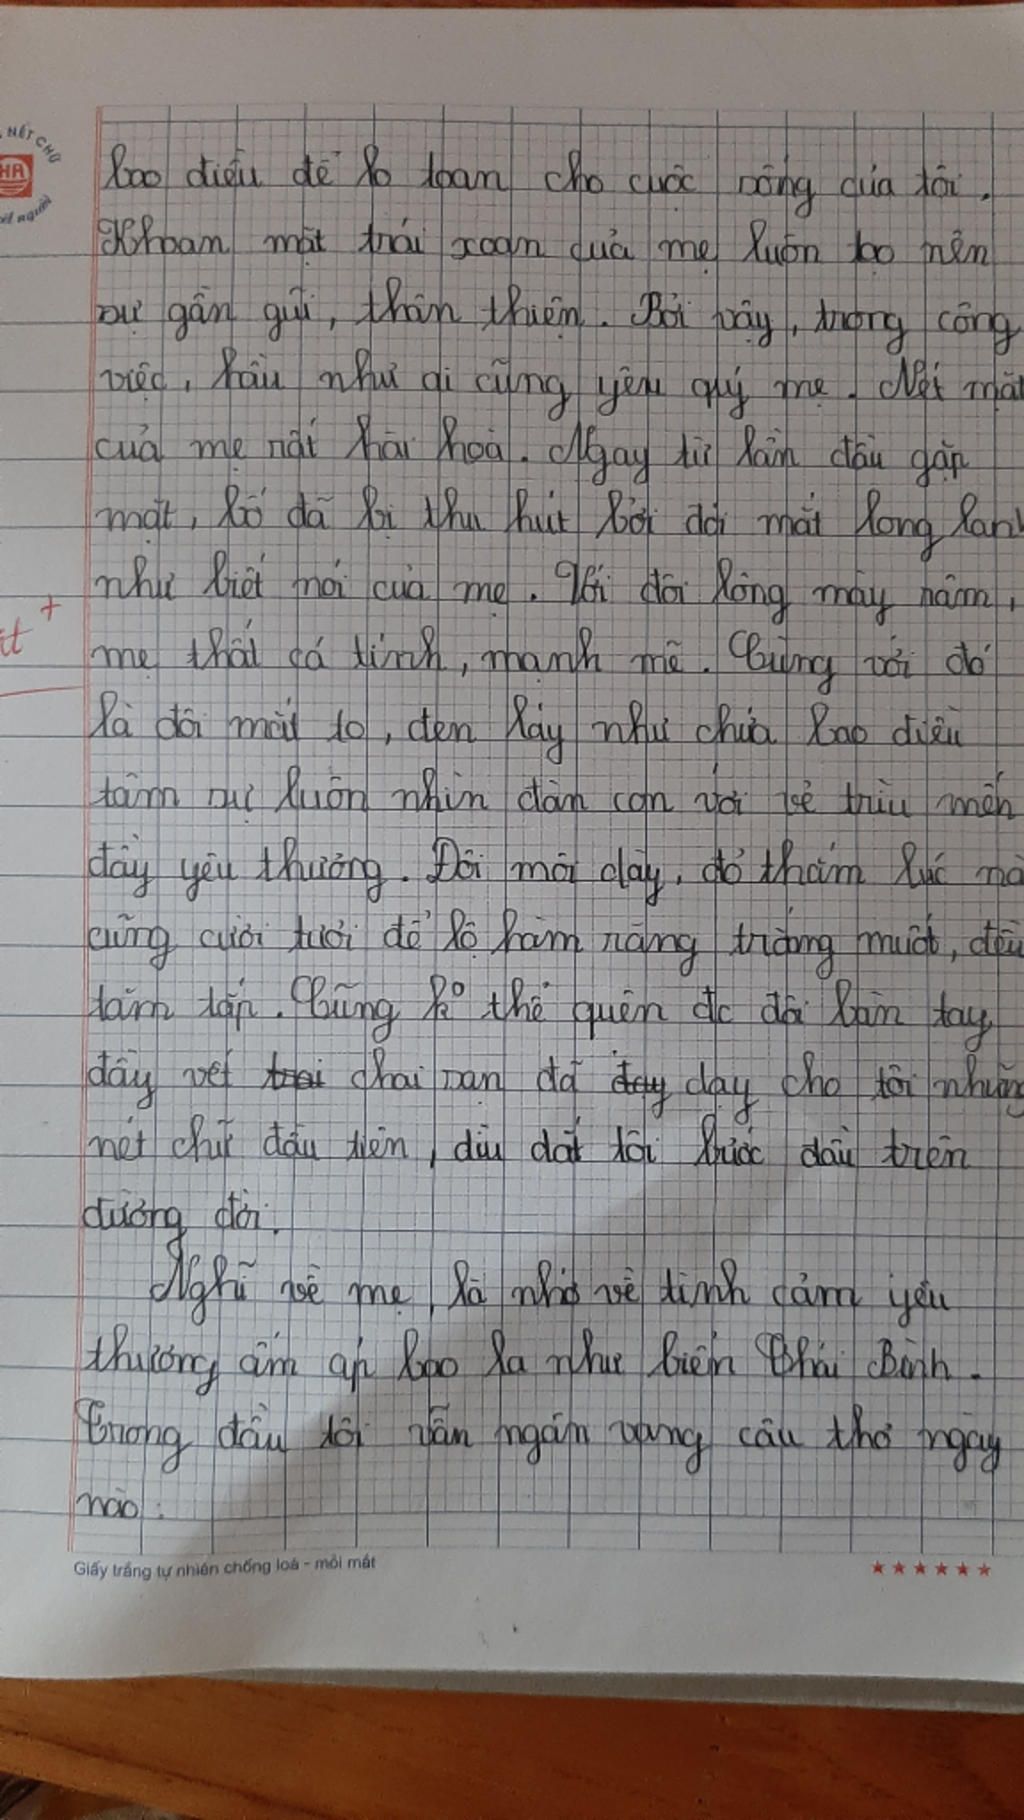 NÉT CHỮ
HA
bao điều để lo toan cho cuộc sống của tôi.
Khoan mặt trái xoan của mẹ luôn tạo nên
sự gần gũi, thân thiện. Bởi vậy, trong công
việc, hầu như ai cũng yêu quý mẹ. Nét mặt
của mẹ rất hài hoà. Ngay từ lần đầu gặp
mặt, bố đã bị thu hút bởi đôi mắt long lanh
như biết nói của mẹ. Với đôi lông mày rậm,
mẹ thật cá tính, mạnh mẽ. Cùng với đó
là đôi mắt to, đen láy như chứa bao điều
tâm sự luôn nhìn đàn con với vẻ trìu mến
đầy yêu thương. Đôi môi dày, đỏ thắm lúc nào
cũng cười tươi để lộ hàm răng trắng muốt, đều
tăm tắp. Cũng ko thể quên đc đôi bàn tay
đầy vết chai sạn đã dạy cho tôi những
nét chữ đầu tiên, dìu dắt tôi bước đầu trên
đường đời.
Nghĩ về mẹ, là nhớ về tình cảm yêu
thương ấm áp bao la như biển Thái Bình.
Trong đầu tôi vẫn ngân vang câu thơ ngày
nào:
Giấy trắng tự nhiên chống loá - mỏi mắt